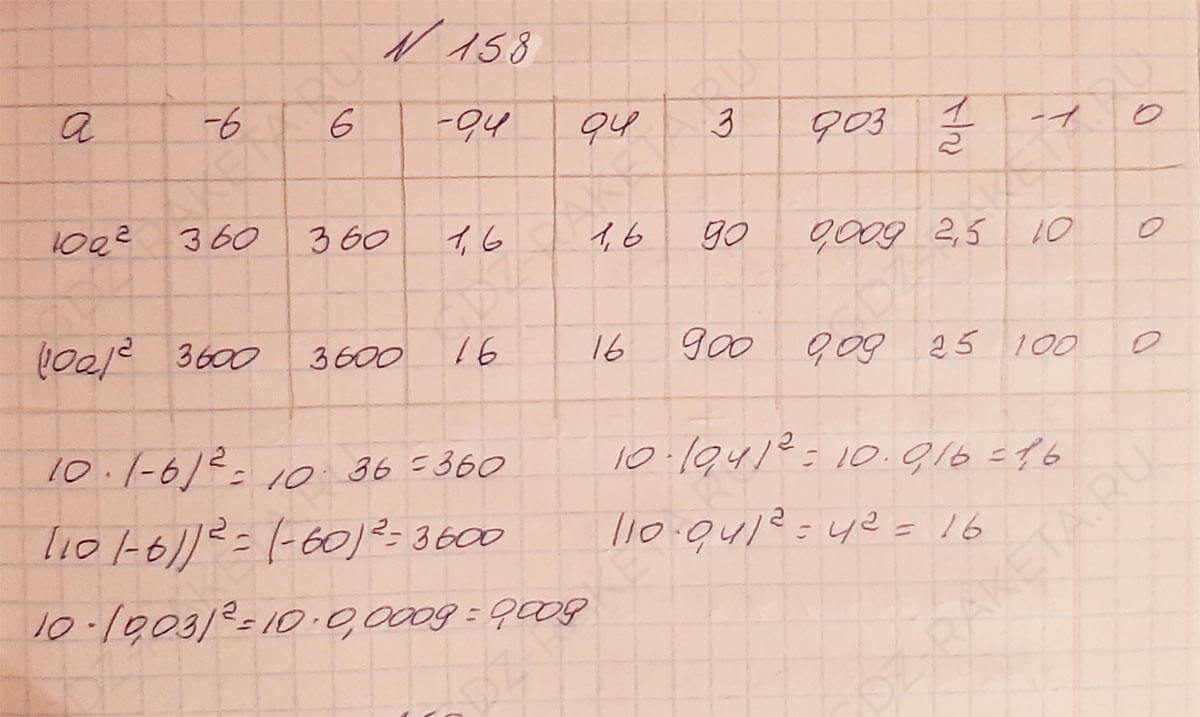 N 158
a -6 6 -0,4 0,4 3 0,03 1/2 -1 0
10a² 360 360 1,6 1,6 90 0,009 2,5 10 0
(10a)² 3600 3600 16 16 900 0,09 25 100 0
10 · (-6)² = 10 · 36 = 360
10 · (0,4)² = 10 · 0,16 = 1,6
(10 (-6))² = (-60)² = 3600
(10 · 0,4)² = 4² = 16
10 · (0,03)² = 10 · 0,0009 = 0,009
GDZ-RAKETA.RU